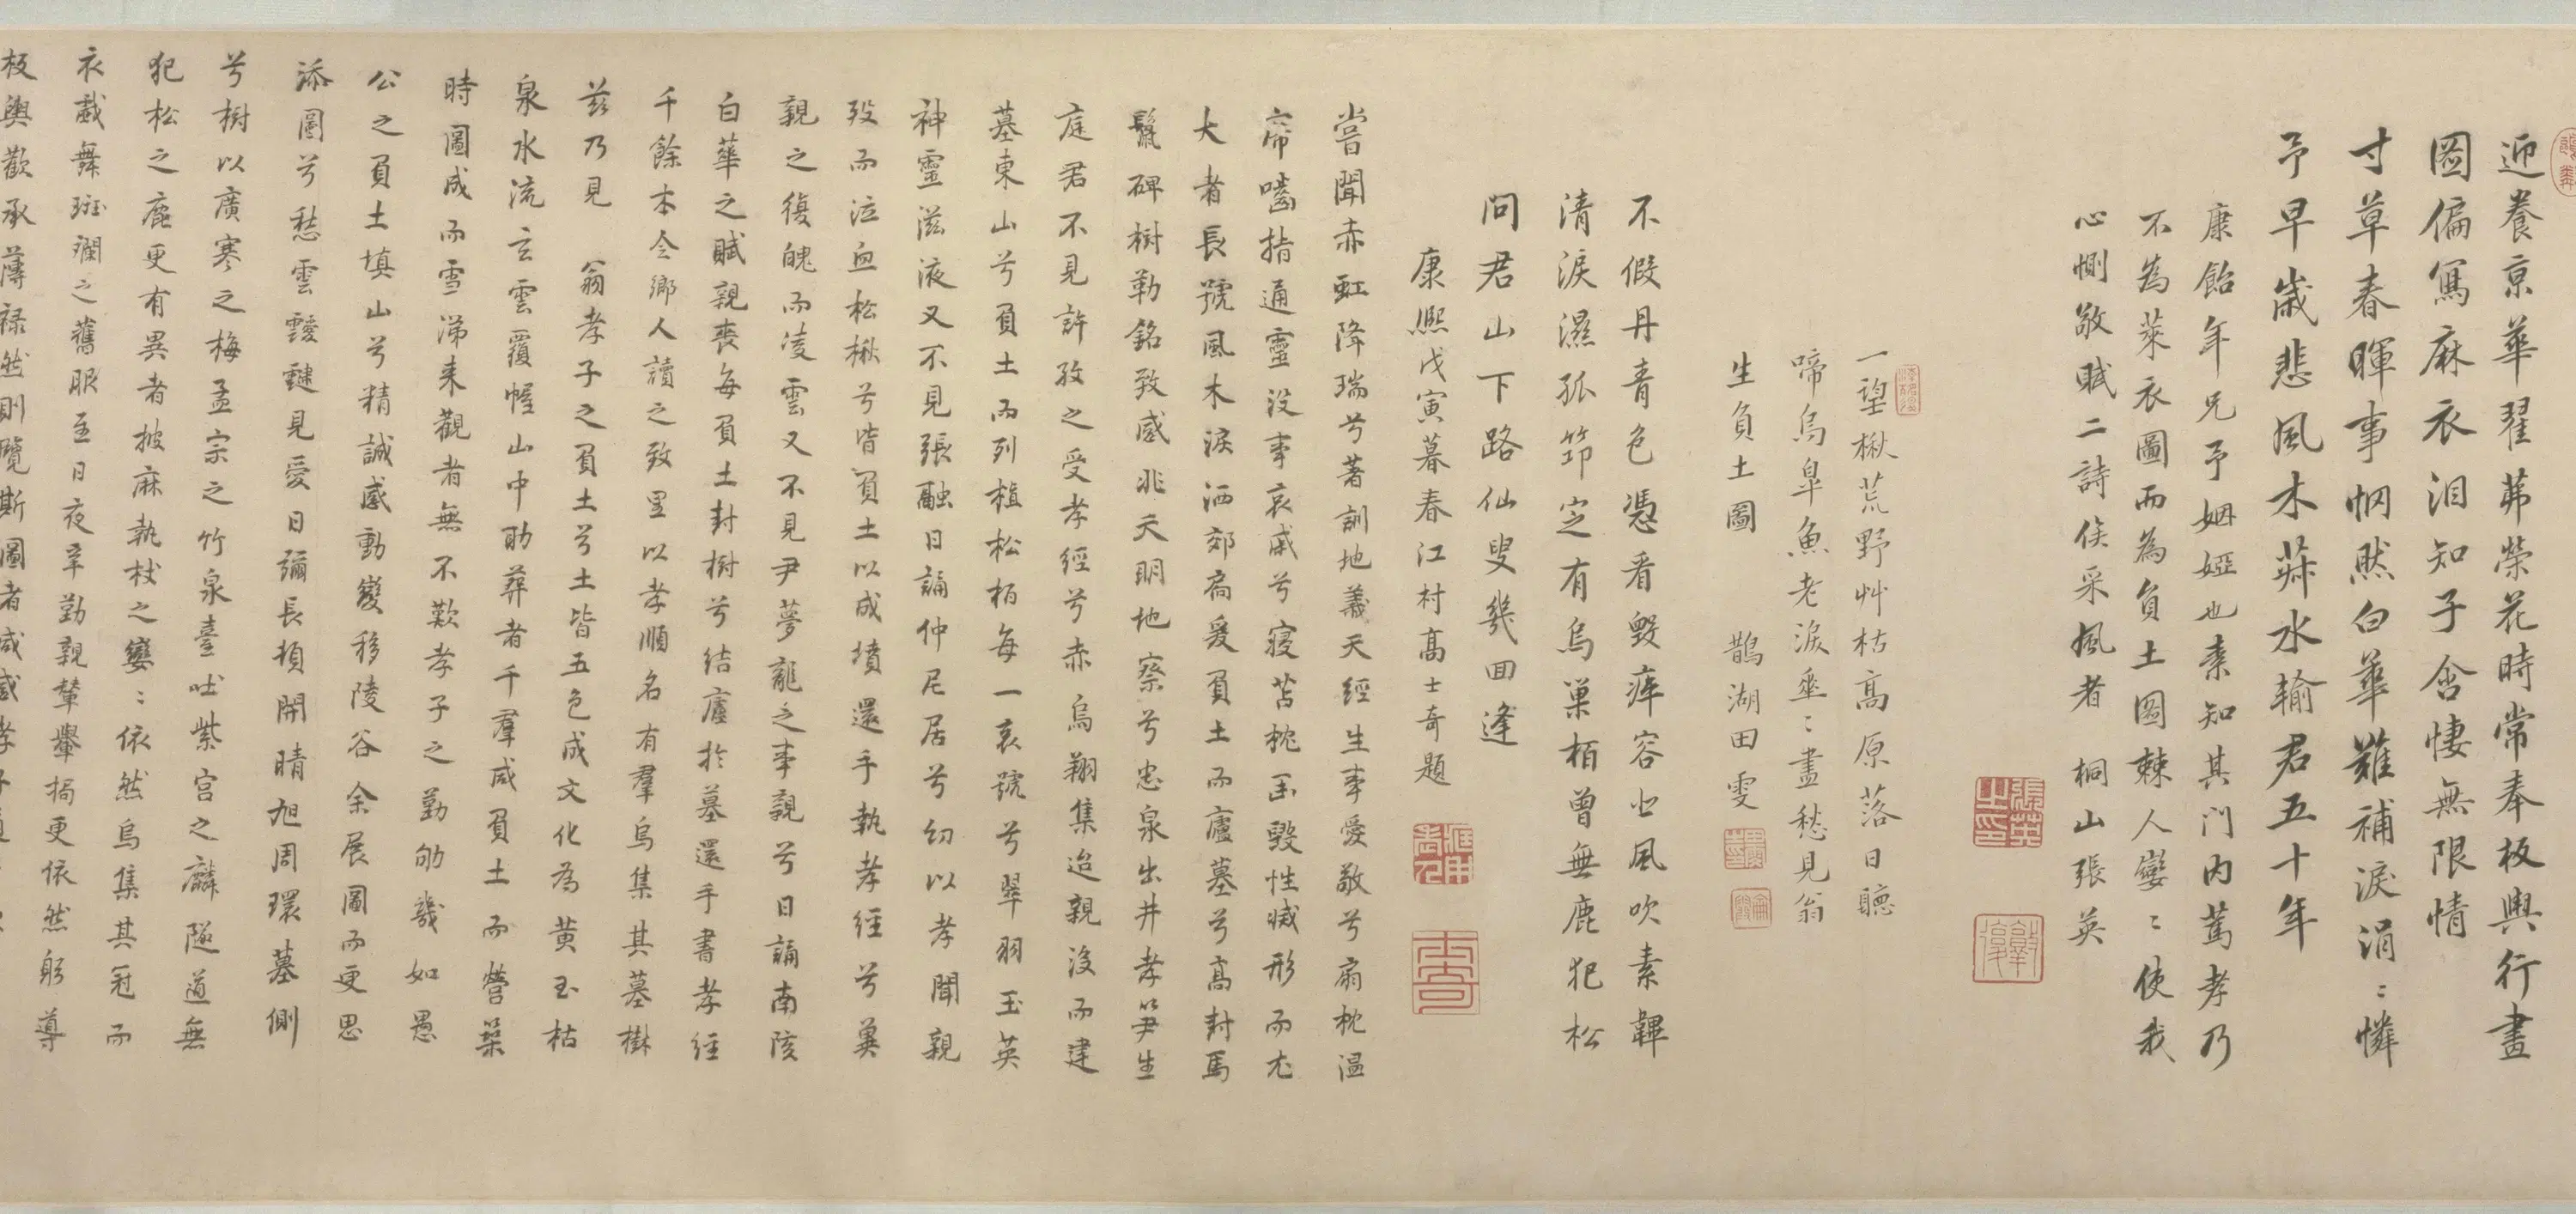 迎養京華翟茀榮花時常奉板輿行畫
圖偏寫麻衣泪知子含悽無限情
寸草春暉事惘然白華難補淚涓:憐
予早歲悲風木菽水輸君五十年
康飴年兄予姻婭也素知其門内篤孝乃
不為萊衣圖而為負土圖棘人欒:使我
心惻敬賦二詩俟采風者 桐山張英
張英之印
一望楸荒野艸枯高原落日聽
啼烏臯魚老淚垂:盡愁見翁
生負土圖 鵲湖田雯
不假丹青色憑看毀瘠容北風吹素鞸
清淚濕孤筇定有烏巢栢曾無鹿犯松
問君山下路仙叟幾回逢
康熙戊寅暮春江村高士奇題
士奇
嘗聞赤虹降瑞兮著訓地義天經生事愛敬兮扇枕温
席嚙指通靈没事哀戚兮寢苫枕凷毁性烕形而尤
大者長號風木淚洒郊扃爰負土而廬墓兮髙封馬
鬣碑樹勒銘致感兆天明地察兮忠泉出井孝笋生
庭君不見許孜之受孝經兮赤烏翔集迨親没而建
墓東山兮負土而列植松栢每一哀號兮翠羽玉英
神靈滋液又不見張融日誦仲尼居兮幼以孝聞親
殁而泣血松楸兮皆負土以成墳還手執孝經兮奠
親之復魄而凌雲又不見尹夢龍之事親兮日誦南陔
白華之賦親喪每負土封樹兮結廬於墓還手書孝經
千餘本令鄉人讀之致里以孝順名有羣烏集其墓樹
兹乃見 翁孝子之負土兮土皆五色成文化為黄玉枯
泉水流玄雲覆幄山中助葬者千羣咸負土而營築
時圖成而雪涕来觀者無不歎孝子之勤劬幾如愚
公之負土填山兮精誠感動變移陵谷余展圖而更思
添圖兮愁雲靉靆見愛日彌長頓開晴旭周環墓側
兮樹以廣寒之梅孟宗之竹泉臺吐紫宫之麟隧道無
犯松之鹿更有異者披麻執杖之欒:依然烏集其冠而
衣戲舞斑斕之舊服至日夜辛勤親輂轝揭更依然躬導
板輿歡承薄禄然則覽斯圖者咸感孝子